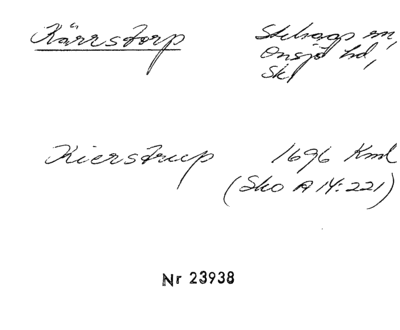 Kärrstorp
Stehags sn,
Onsjö hd,
Sk
Kierstrup
1696 Kml
(Sko A 14:221)
Nr 23938